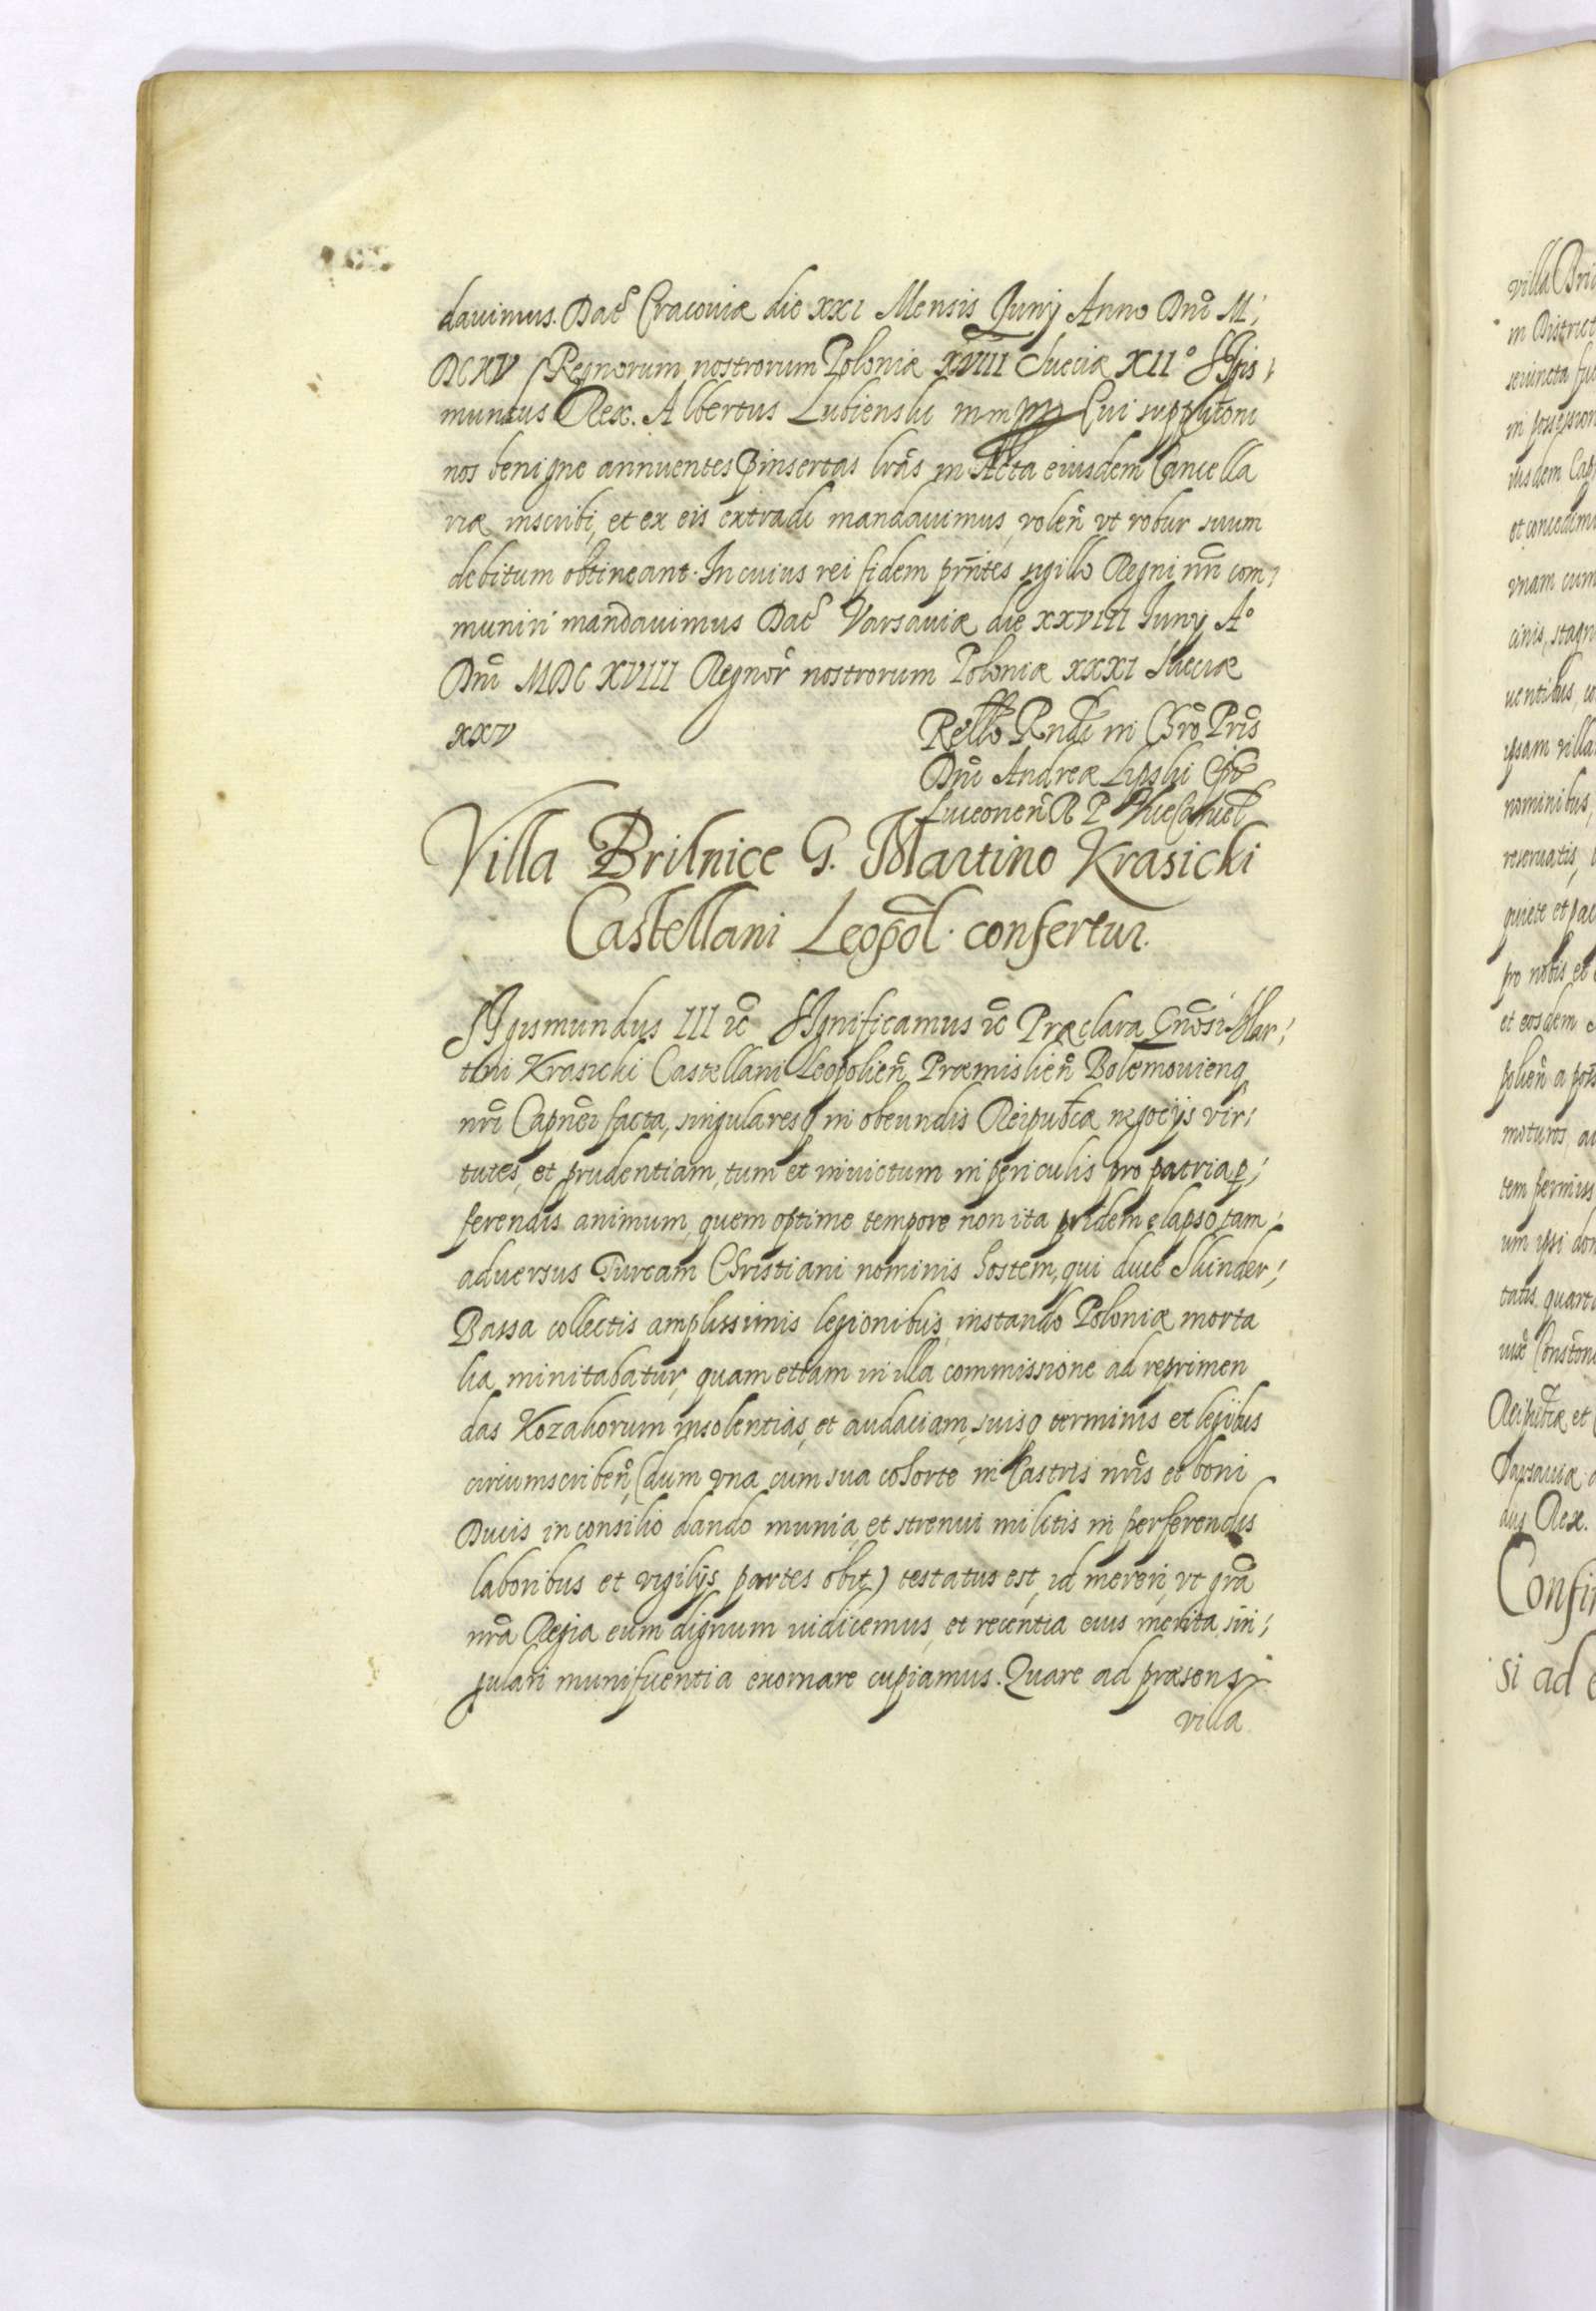 dauimus. Dat Cracouiæ die XXI Mensis Junij Anno Dni M;
DCXV Regnorum nostrorum Poloniæ XVIII Sueciæ XII° Sigis;
mundus Rex. Albertus Lubienski mmpp Cui supplitoni
nos benigne annuentes pinsertas lras in Acta eiusdem Cancella
riæ inscribi, et ex eis extradi mandauimus, volen vt robur suum
debitum obtineant. In cuius rei fidem prntes sigillo Regni nri com;
muniri mandauimus Dat Varsauiæ die XXVIII Juny A°
Dni MDCXVIII Regnor nostrorum Poloniæ XXXI Sueciæ
XXV
Rello Rndi in Chro Pris
Dni Andreæ Lipski Epi
Luceonen R P Vicecancel
Villa Brilnice G. Martino Krasicki
Castellani Leopol. confertur.
Sigismundus III ic Significamus ic Præclara Gnosi Mar;
tini Krasicki Castellani Leopolien Præmislien Bolemouienq
nri Capnei facta, singularesq in obeundis Reipubcæ negocijs vir;
tutes, et prudentiam, tum et inuictum in periculis pro patria p;
ferendis animum, quem optime tempore non ita pridem elapso, tam
aduersus Turcam Christiani nominis hostem, qui duce Skinder;
Bassa collectis amplissimis legionibus, instando Poloniæ morta
lia minitabatur, quam etiam in illa commissione ad reprimen
das Kozakorum insolentias, et audaciam, suisq terminis et legibus
circumscriben, (dum vna cum sua cohorte in Castris nris et boni
Ducis in consilio dando munia, et strenui militis in perferendis
laboribus et vigilijs partes obit) testatus est, id mereri, vt gra
nra Regia eum dignum iudicemus, et recentia eius merita sin;
gulari munificentia exornare cupiamus. Quare ad præsens
villa